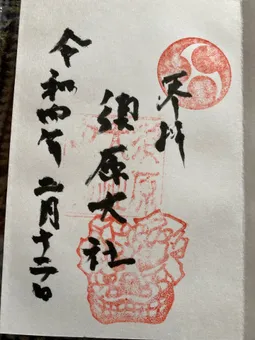 奉拝
須原大社
令和四年二月十二日